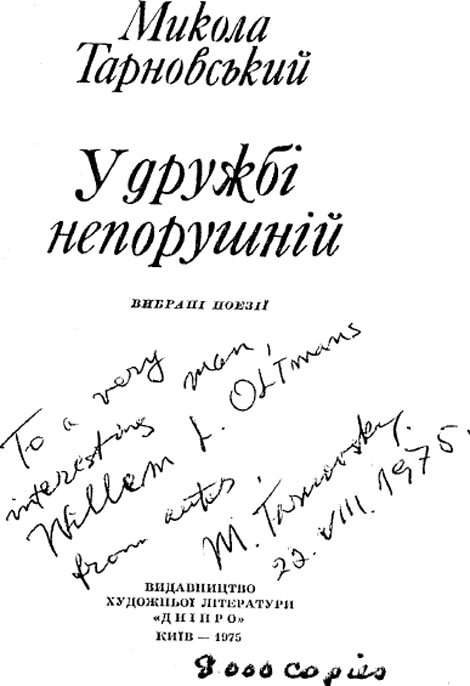 Микола
Тарновський
У дружбі
непорушній
ВИБРАНІ ПОЕЗІЇ
To a very
interesting man,
Willem L. OLTmans
from autor,
M. Tarnovsky.
22. VIII. 1975.
ВИДАВНИЦТВО
ХУДОЖНЬОЇ ЛІТЕРАТУРИ
«ДНІПРО»
КИЇВ — 1975
8000 copies